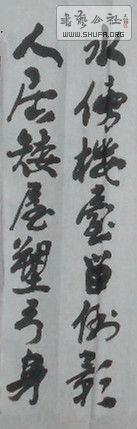 水傍樓臺留倒影
人居矮屋塑弓身
书艺公社
WWW.SHUFA.ORG